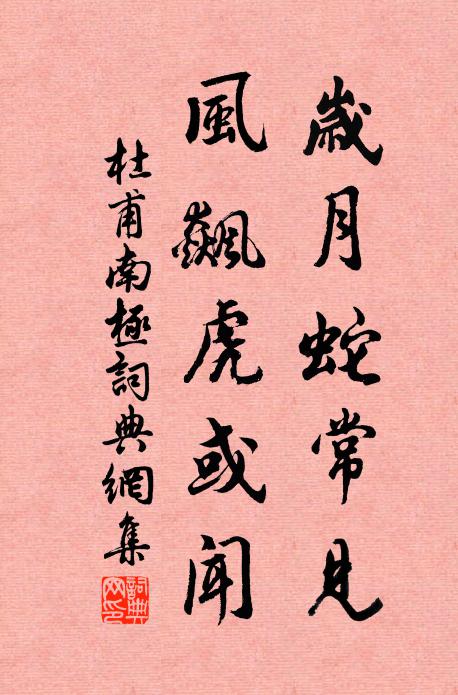 歲月蛇常見
風飆虎或聞
杜甫南極詞典網集
詞典
网印